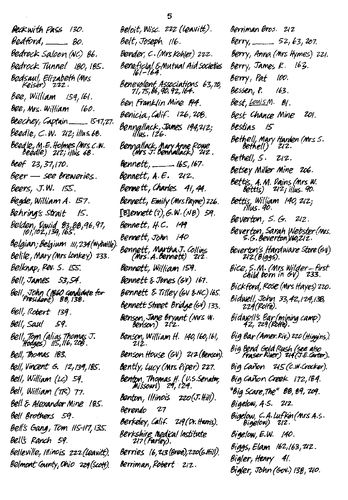 5
Beckwith Pass 130.
Bedford, ____ 80.
Bedrock Saloon (NC) 86.
Bedrock Tunnel 180, 185.
Bedsaul, Elizabeth (Mrs
Keiser) 222.
Bee, William 159, 161.
Bee, Mrs. William 160.
Beechey, Captain
Beadle, C.W. 212; illus. 68.
Beadle, M.E. Holmes (Mrs C.W.
Beadle) 212; illus. 68.
Beef 23, 37, 170.
Beer — see breweries.
Beers, J.W. 155.
Begole, William A. 157.
Behring's Strait 15.
Belden, David 83, 88, 96, 97,
101, 102, 159, 165.
Belgian; Belgium 111, 234
Belile, Mary (Mrs Lonkey) 233.
Belknap, Rev. S. 155.
Bell, James 53, 54.
Bell, John (1860 candidate for
President) 88, 138.
Bell, Robert 139.
Bell, Saul 59.
Bell, Tom (alias Thomas J.
Hodges) 115, 116, 209.
Bell, Thomas 183.
Bell, Vincent G. 12, 139, 185.
Bell, William (LG) 59.
Bell, William (TR) 77.
Bell & Alexander Mine 185.
Bell Brothers 59.
Bell's Gang, Tom 115-117, 135.
Bell's Ranch 59.
Belleville, Illinois 222 (Leavitt).
Belmont County, Ohio 209 (Scott).
Beloit, Wisc. 222 (Leavitt).
Belt, Joseph 116.
Bender, C. (Mrs Kohler) 222.
Beneficial & Mutual Aid Societies
161-164.
Benevolent Associations 63, 70,
71, 75, 86, 90, 92, 164.
Ben Franklin Mine 194.
Benicia, Calif. 126, 208.
Bennallack, James 194, 212;
illus. 126.
Bennallack, Mary Anne Rowe
(Mrs J. Bennallack) 212.
Bennett, ____ 165, 167.
Bennett, A.E. 212.
Bennett, Charles 41, 44.
Bennett, Emily (Mrs Payne) 226.
[B]ennett (?), G.W. (NB) 59.
Bennett, H.C. 149
Bennett, John 140
Bennett, Martha J. Collins
(Mrs A. Bennett) 212.
Bennett, William 159.
Bennett & Jones (GV) 167.
Bennett & Tilley (GV & NC) 165.
Bennett Street Bridge (GV) 133.
Benson, Jane Bryant (Mrs W.
Benson) 212.
Benson, William H. 140, 160, 161,
212.
Benson House (GV) 212 (Benson).
Bently, Lucy (Mrs Piper) 227.
Benton, Thomas H. (U.S. Senator,
Missouri) 29, 124.
Benton, Illinois 220 (J. Hill).
Berendo 27
Berkeley, Calif. 219 (Dr. Harris).
Berkshire Medical Institute
217 (Farley).
Berries 16, 213 (Bree), 220 (G. Hill).
Berriman, Robert 212.
Berriman Bros. 212
Berry, ____ 52, 63, 207.
Berry, Anna (Mrs Hymes) 221.
Berry, James K. 163.
Berry, Pat 100.
Bessen, P. 163.
Best, Louis M. 81.
Best Chance Mine 201.
Bestias 15
Bethell, Mary Harden (Mrs S.
Bethell) 212.
Bethell, S. 212.
Betsey Miller Mine 206.
Bettis, A.M. Dains (Mrs W.
Bettis) 212; illus. 90.
Bettis, William 140, 212;
illus. 90.
Beverton, S.G. 212.
Beverton, Sarah Webster (Mrs.
S.G. Beverton) 212.
Beverton's Hardware Store (GV)
212 (Biggs).
Bice, S.M. (Mrs Wilder – first
child born in GV) 233.
Bickford, Rose (Mrs Hayes) 220.
Bidwell, John 33, 42, 124, 138,
229 (Rolfe).
Bidwell's Bar (mining camp)
42, 209 (Rolfe).
Big Bar (Amer. R.) 220 (Higgins).
Big Bend Gold Rush (see also
Fraser River) 214 (J.E. Carter).
Big Cañon 215 (C.W. Crocker).
Big Cañon Creek 172, 184.
"Big Scare, The" 88, 89, 209.
Bigelow, A.S. 212.
Bigelow, C.A. Lufkin (Mrs A.S.
Bigelow) 212.
Bigelow, E.W. 140.
Biggs, Elam 162, 163, 212.
Bigler, Henry 41.
Bigler, John (Gov.) 138, 210.